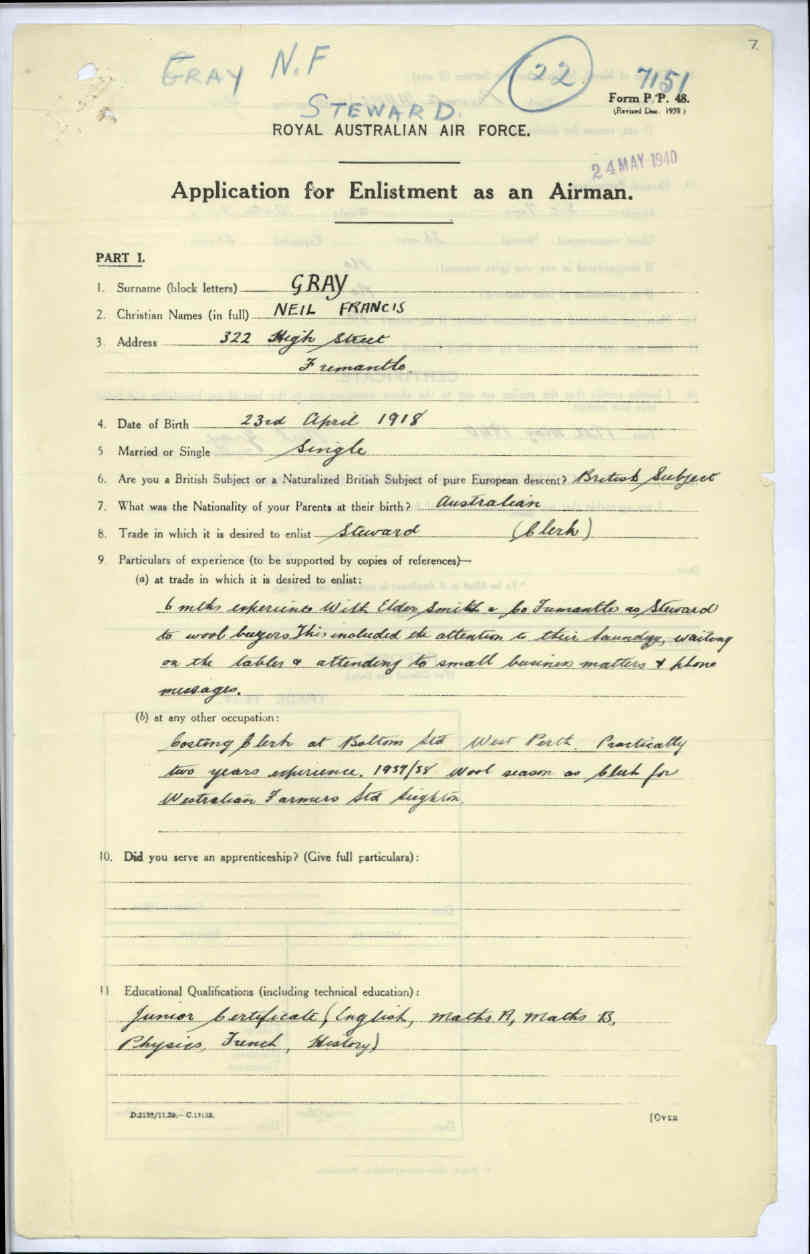 7
GRAY N.F 22 7151
Form P/P. 48.
(Revised Dec. 1939)
STEWARD.
ROYAL AUSTRALIAN AIR FORCE.
24 MAY 1940
Application for Enlistment as an Airman.
PART I.
1. Surname (block letters) GRAY
2. Christian Names (in full) NEIL FRANCIS
3. Address 322 High Street
Fremantle.
4. Date of Birth 23rd April 1918
5 Married or Single Single
6. Are you a British Subject or a Naturalized British Subject of pure European descent? British Subject
7. What was the Nationality of your Parents at their birth? Australian
8. Trade in which it is desired to enlist Steward (Clerk)
9. Particulars of experience (to be supported by copies of references)—
(a) at trade in which it is desired to enlist:
6 mths experience With Elder Smith & Co Fremantle as Steward
to wool buyers This included the attention to their laundry, waiting
on the tables & attending to small business matters & phone
messages.
(b) at any other occupation:
Costing Clerk at Boltons Ltd West Perth. Practically
two years experience. 1937/38 Wool season as Clerk for
Westralian Farmers Ltd
10. Did you serve an apprenticeship? (Give full particulars):
11 Educational Qualifications (including technical education):
Junior Certificate (English, Maths A, Maths B,
Physics, French, History)
[OVER